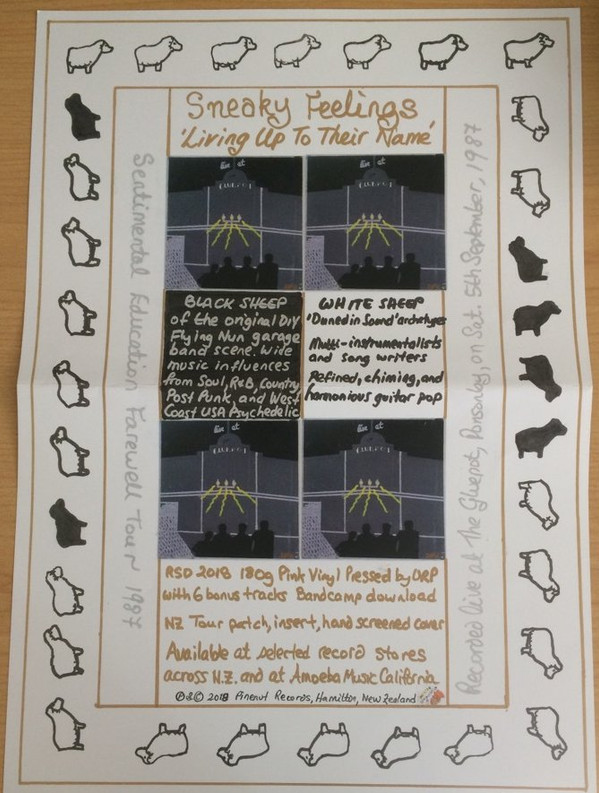 Sneaky Feelings
'Living Up To Their Name'
Sentimental Education Farewell Tour 1987
live at
GLUEPOT
live at
GLUEPOT
BLACK SHEEP
of the original DIY
Flying Nun garage
band scene. Wide
music influences
from Soul, R&B, Country,
Post Punk, and West
Coast USA Psychedelic
WHITE SHEEP
'Dunedin Sound' archetypes
Multi-instrumentalists
and song writers
Refined, chiming, and
harmonious guitar pop
live at
GLUEPOT
live at
GLUEPOT
RSD 2018 180g Pink Vinyl Pressed by ORP
with 6 bonus tracks Bandcamp download
NZ Tour patch, insert, hand screened cover
Available at selected record stores
across N.Z. and at Amoeba Music California
℗&© 2018 Pinenut Records, Hamilton, New Zealand
Recorded live at The Gluepot, Ponsonby, on Sat. 5th September, 1987